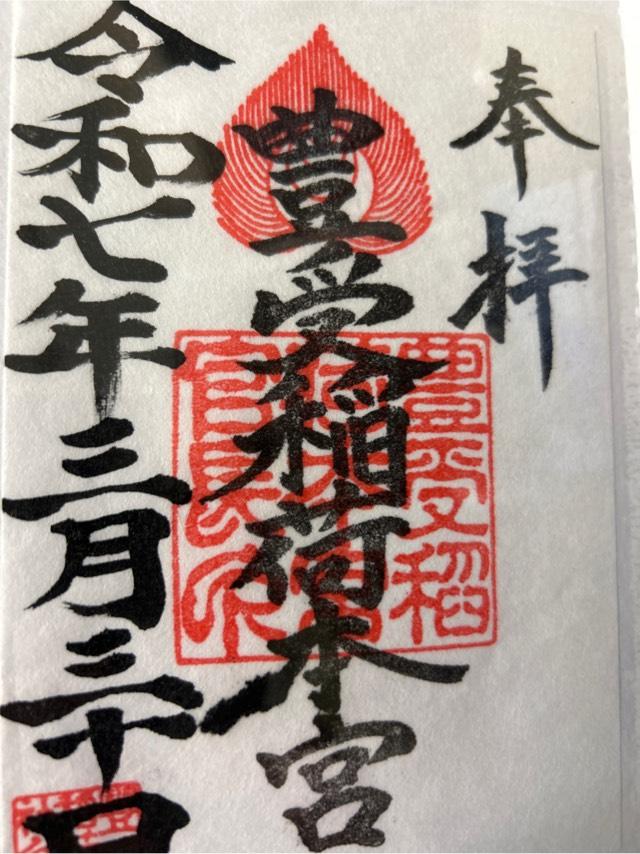 奉拝
豊受稲荷本宮
令和七年三月三十日